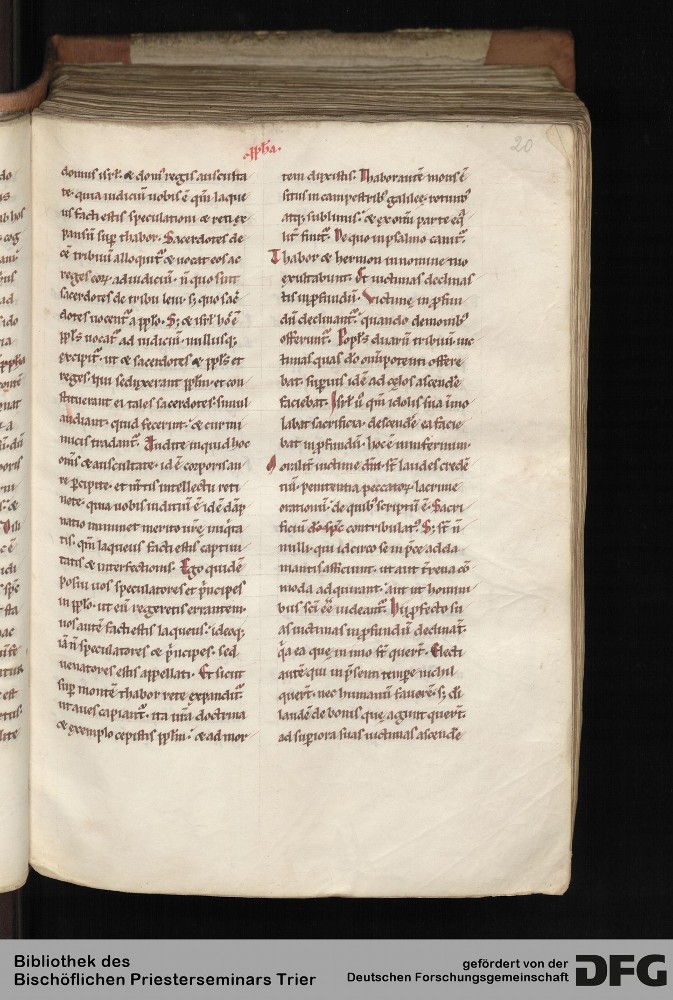 20
domus isrl̄. & dom' regis ausculta
te. quia iudiciū uobis ē. qm̄ laque
us facti estis speculationi & rete ex
pansū sup thabor. Sacerdotes de
cē tribuū alloquit̄. & uocat eos ac
reges eoꝝ ad iudiciū. ñ quo sint
sacerdotes de tribu leui. s; quo sac̄
dotes uocent̄ a pplo. S; & isrl̄ hoc ē
ppls uocat̄ ad iudiciū. nullusq;
excipit̄. ut & sacerdotes & ppls et
reges. qui sedixerant pplm̄. et con
stituerant ei tales sacerdotes. simul
audiant. quid fecerint. & cur ini
micis tradant̄. Audite inquid hoc
om̄s & auscultate. id ē corporis au
re p̄cipite. et m̄tis intellectu reti
nete. qua uobis iudiciū ē. id ē dāp
natio imminet merito ur̄ę iniq̄ta
tis. qm̄ laqueus facti estis captiui
tatis & interfectionis. Ego quidē
posui uos speculatores et p̄ncipes
in pplo. ut eū regeretis errantem.
uos autē facti estis laqueus. ideoq;
iā ñ speculatores & p̄ncipes. sed
uenatores estis appellati. Et sicut
sup montē thabor rete expandit̄.
ut aues capiant̄. ita ur̄a doctrina
& exemplo cepistis pplm̄. & ad mor
tem duxistis. Thabor autē mons ē
situs in campestrib; galileę. rotund'
atq; sublimis. & ex om̄i parte eq̄
lit̄ finit̄. De quo in psalmo canit̄.
Thabor & hermon in nomine tuo
exultabunt. Et uictimas declinas
tis in p̄fundū. Victimę in p̄fun
dū declinant̄. quando demonib;
offerunt̄. Popl's duarū tribuū uic
timas quas dō om̄ipotenti offere
bat. sup̄ius id ē ad cęlos ascende
faciebat. Isrl̄ ū qm̄ idolis sua īmo
labat sacrificia. descendē ea facie
bat in p̄fundū. hoc ē in infernum.
Moralit̄ uictimę dn̄i. st̄ laudes credē
tiū. penitentia peccatoꝝ. lacrimę
orationū. de quib; scriptū ē. Sacri
ficiū dō sp̄c contribulat'. S; st̄ ñ
nulli. qui idcirco se in p̄ce addā
mantis afficiunt. ut aut t̄rena cō
moda adquirant. aut ut homini
bus sc̄i eē uideant̄. Hi p̄fecto su
as uictimas in p̄fundū declinat̄.
q̄a ea quę in imo st̄ querunt̄. Electi
autē qui in p̄senti tempe nichil
querunt̄. nec humanū fauorē. s; di
laudē de bonis quę agunt querunt̄.
ad superiora suas uictimas ascende
Bibliothek des
Bischöflichen Priesterseminars Trier
gefördert von der
Deutschen Forschungsgemeinschaft
DFG